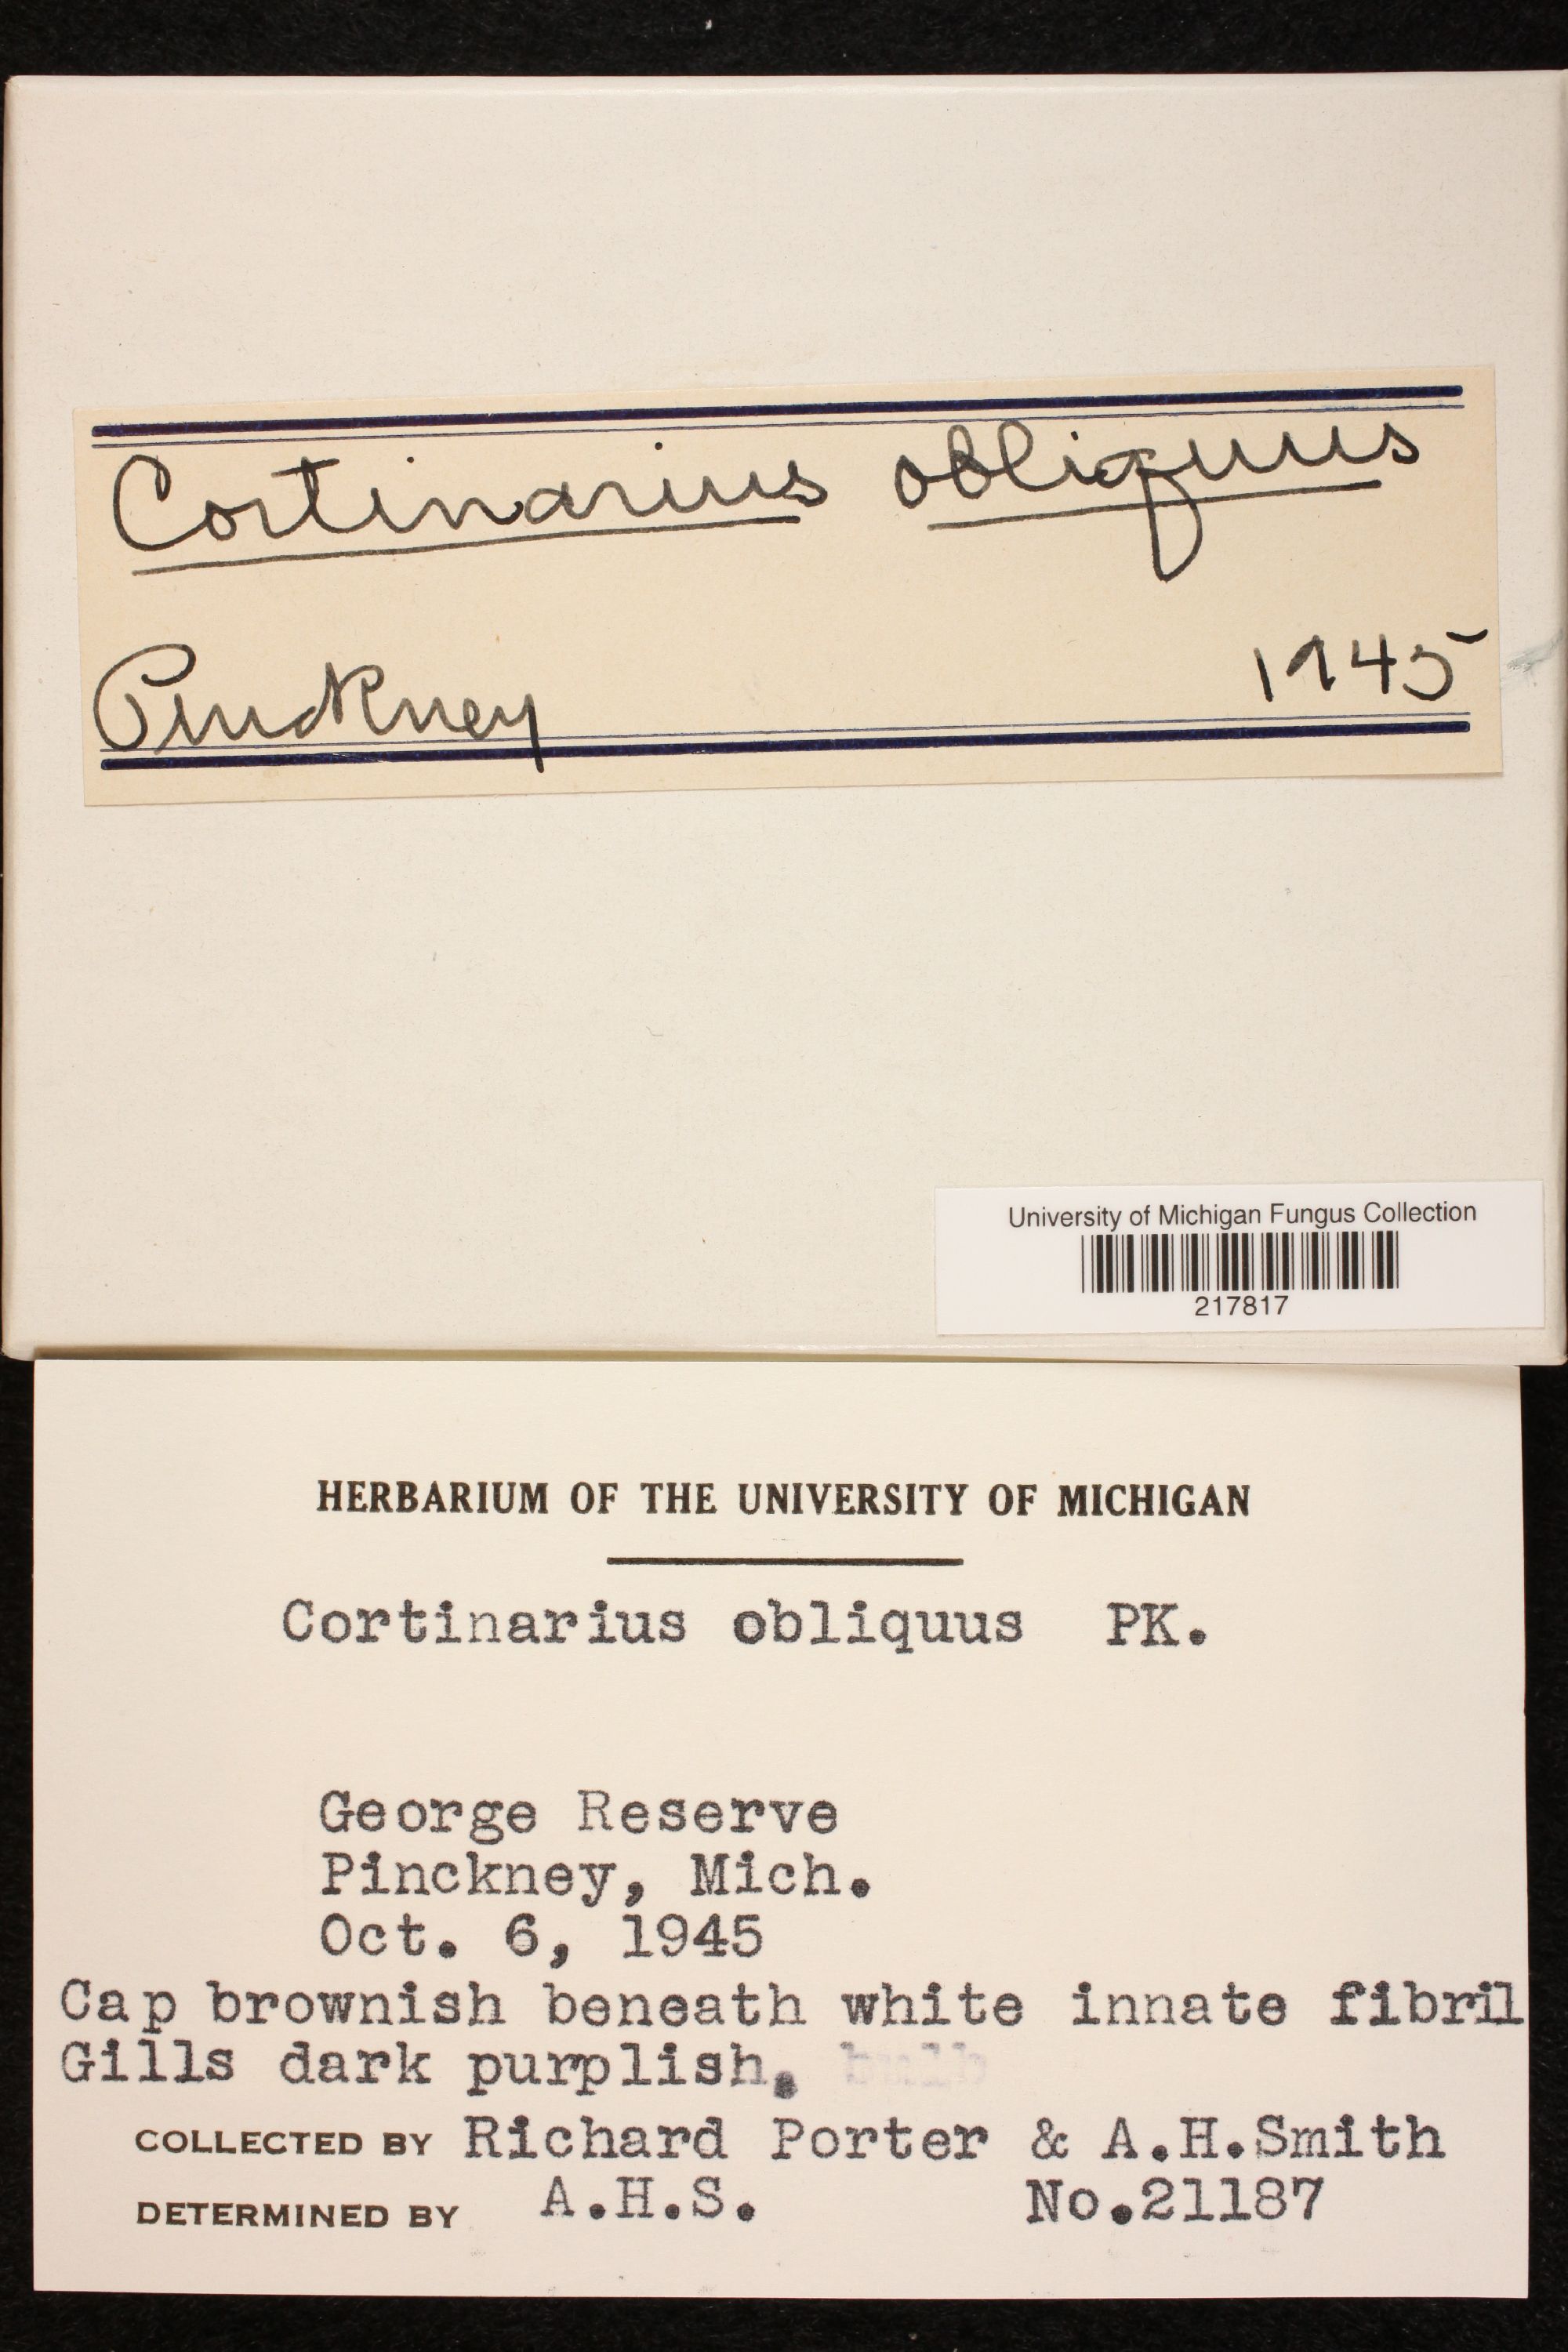 Cortinarius obliquus
Pinckney 1945
University of Michigan Fungus Collection
217817
HERBARIUM OF THE UNIVERSITY OF MICHIGAN
Cortinarius obliquus PK.
George Reserve
Pinckney, Mich.
Oct. 6, 1945
Cap brownish beneath white innate fibril
Gills dark purplish. bulb
COLLECTED BY Richard Porter & A.H.Smith
DETERMINED BY A.H.S. No.21187